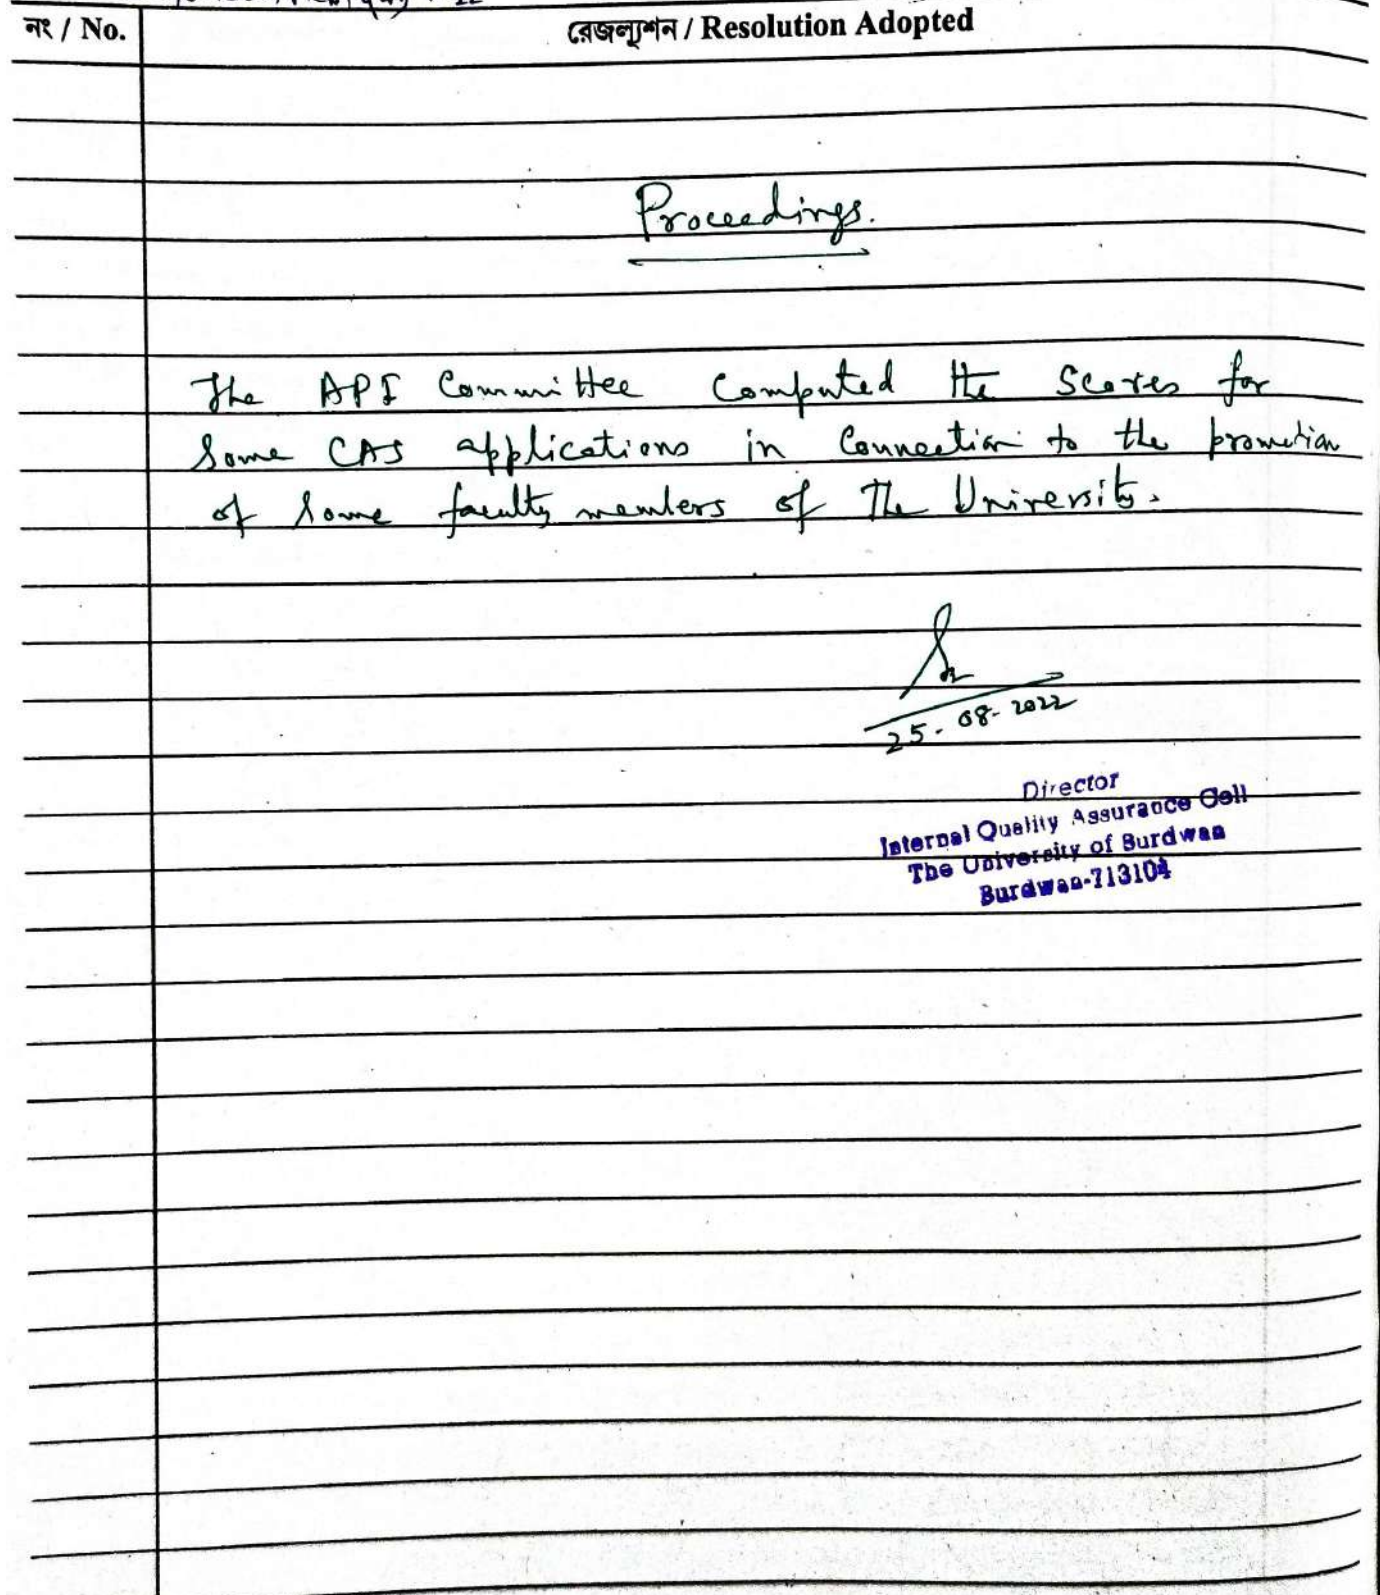 নং / No.
রেজল্যুশন / Resolution Adopted
Proceedings.
The API Committee Computed the Scores for
Some CAS applications in Connection to the promotion
of Some faculty members of The University.
25-08-2022
Director
Internal Quality Assurance Cell
The University of Burdwan
Burdwan-713104